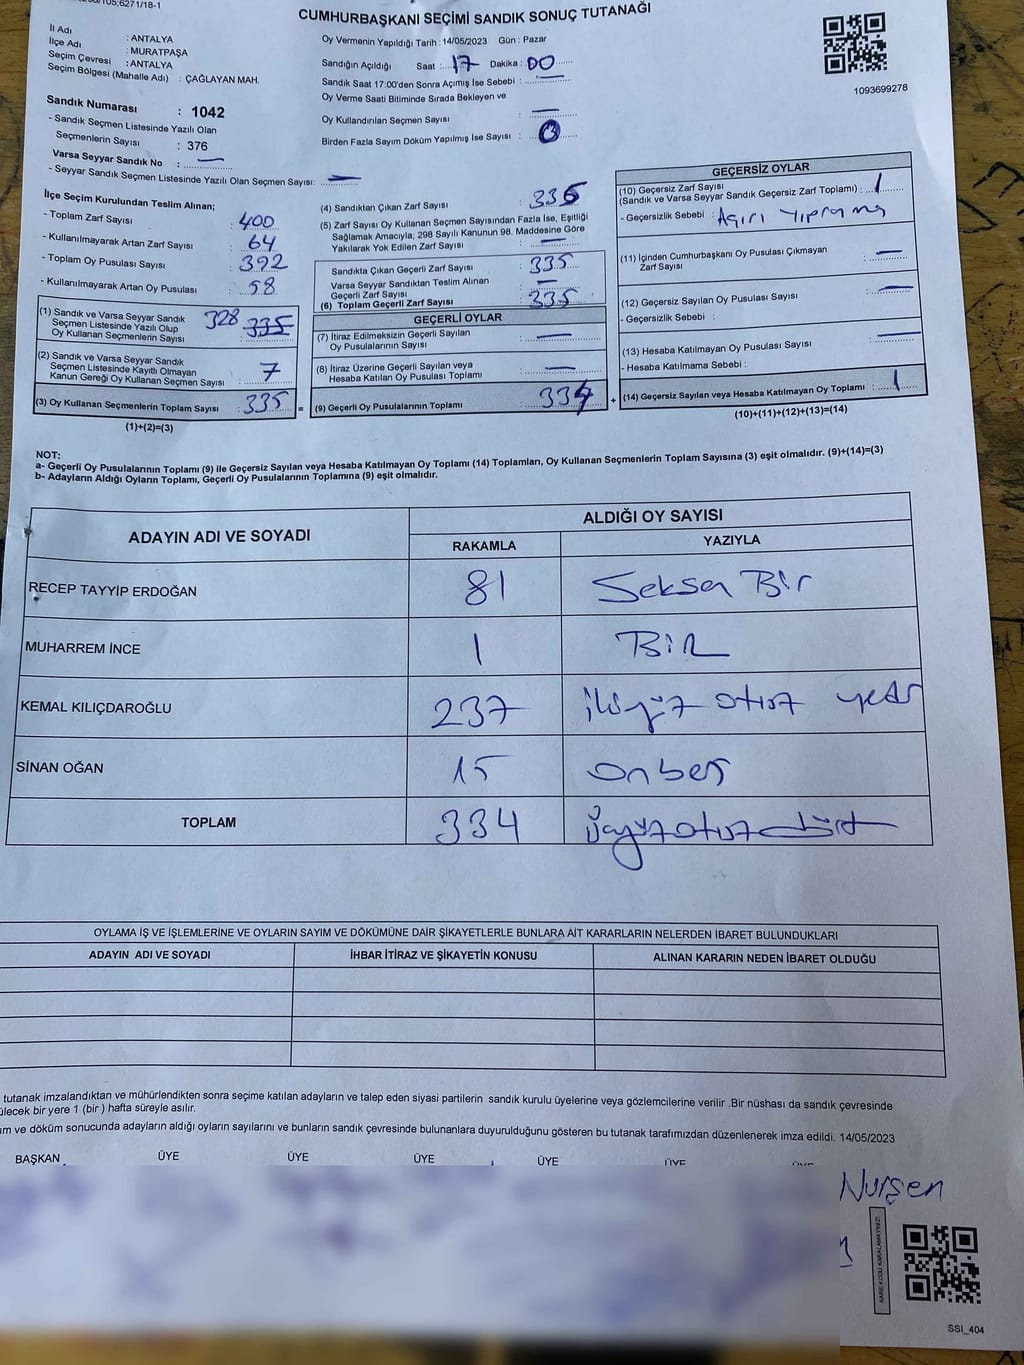 CUMHURBAŞKANI SEÇİMİ SANDIK SONUÇ TUTANAĞI
İl Adı : ANTALYA
İlçe Adı : MURATPAŞA
Seçim Çevresi : ANTALYA
Seçim Bölgesi (Mahalle Adı) : ÇAĞLAYAN MAH.
Oy Vermenin Yapıldığı Tarih : 14/05/2023 Gün : Pazar
Sandığın Açıldığı Saat : 17 Dakika : 00
Sandık Saat 17:00'den Sonra Açımış İse Sebebi :
Oy Verme Saati Bitiminde Sırada Bekleyen ve
Oy Kullandırılan Seçmen Sayısı :
Birden Fazla Sayım Döküm Yapılmış İse Sayısı : 0
1093699278
Sandık Numarası : 1042
- Sandık Seçmen Listesinde Yazılı Olan
Seçmenlerin Sayısı : 376
Varsa Seyyar Sandık No :
- Seyyar Sandık Seçmen Listesinde Yazılı Olan Seçmen Sayısı:
İlçe Seçim Kurulundan Teslim Alınan;
- Toplam Zarf Sayısı : 400
- Kullanılmayarak Artan Zarf Sayısı : 64
- Toplam Oy Pusulası Sayısı : 392
- Kullanılmayarak Artan Oy Pusulası : 58
(1) Sandık ve Varsa Seyyar Sandık
Seçmen Listesinde Yazılı Olup
Oy Kullanan Seçmenlerin Sayısı : 328 335
(2) Sandık ve Varsa Seyyar Sandık
Seçmen Listesinde Kayıtlı Olmayan
Kanun Gereği Oy Kullanan Seçmen Sayısı : 7
(3) Oy Kullanan Seçmenlerin Toplam Sayısı : 335
(1)+(2)=(3)
(4) Sandıktan Çıkan Zarf Sayısı : 336
(5) Zarf Sayısı Oy Kullanan Seçmen Sayısından Fazla İse, Eşitliği
Sağlamak Amacıyla; 298 Sayılı Kanunun 98. Maddesine Göre
Yakılarak Yok Edilen Zarf Sayısı :
Sandıkta Çıkan Geçerli Zarf Sayısı : 335
Varsa Seyyar Sandıktan Teslim Alınan
Geçerli Zarf Sayısı :
(6) Toplam Geçerli Zarf Sayısı : 335
GEÇERLİ OYLAR
(7) İtiraz Edilmeksizin Geçerli Sayılan
Oy Pusulalarının Sayısı :
(8) İtiraz Üzerine Geçerli Sayılan veya
Hesaba Katılan Oy Pusulası Toplamı :
= (9) Geçerli Oy Pusulalarının Toplamı : 334
GEÇERSİZ OYLAR
(10) Geçersiz Zarf Sayısı
(Sandık ve Varsa Seyyar Sandık Geçersiz Zarf Toplamı) : 1
- Geçersizlik Sebebi : Aşırı Yıpranmış
(11) İçinden Cumhurbaşkanı Oy Pusulası Çıkmayan
Zarf Sayısı :
(12) Geçersiz Sayılan Oy Pusulası Sayısı :
- Geçersizlik Sebebi :
(13) Hesaba Katılmayan Oy Pusulası Sayısı :
- Hesaba Katılmama Sebebi :
+ (14) Geçersiz Sayılan veya Hesaba Katılmayan Oy Toplamı : 1
(10)+(11)+(12)+(13)=(14)
NOT:
a- Geçerli Oy Pusulalarının Toplamı (9) ile Geçersiz Sayılan veya Hesaba Katılmayan Oy Toplamı (14) Toplamları, Oy Kullanan Seçmenlerin Toplam Sayısına (3) eşit olmalıdır. (9)+(14)=(3)
b- Adayların Aldığı Oyların Toplamı, Geçerli Oy Pusulalarının Toplamına (9) eşit olmalıdır.
ADAYIN ADI VE SOYADI
ALDIĞI OY SAYISI
RAKAMLA YAZIYLA
RECEP TAYYİP ERDOĞAN 81 Seksen Bir
MUHARREM İNCE 1 BİR
KEMAL KILIÇDAROĞLU 237 ikiyüz otuz yedi
SİNAN OĞAN 15 onbeş
TOPLAM 334 üçyüzotuzdört
OYLAMA İŞ VE İŞLEMLERİNE VE OYLARIN SAYIM VE DÖKÜMÜNE DAİR ŞİKAYETLERLE BUNLARA AİT KARARLARIN NELERDEN İBARET BULUNDUKLARI
ADAYIN ADI VE SOYADI İHBAR İTİRAZ VE ŞİKAYETİN KONUSU ALINAN KARARIN NEDEN İBARET OLDUĞU
tutanak imzalandıktan ve mühürlendikten sonra seçime katılan adayların ve talep eden siyasi partilerin sandık kurulu üyelerine veya gözlemcilerine verilir .Bir nüshası da sandık çevresinde
ülecek bir yere 1 (bir ) hafta süreyle asılır.
ım ve döküm sonucunda adayların aldığı oyların sayılarını ve bunların sandık çevresinde bulunanlara duyurulduğunu gösteren bu tutanak tarafımızdan düzenlenerek imza edildi. 14/05/2023
BAŞKAN ÜYE ÜYE ÜYE ÜYE ÜYE
Nurşen
KARE KODU KARALAMAYINIZ!
SSI_404